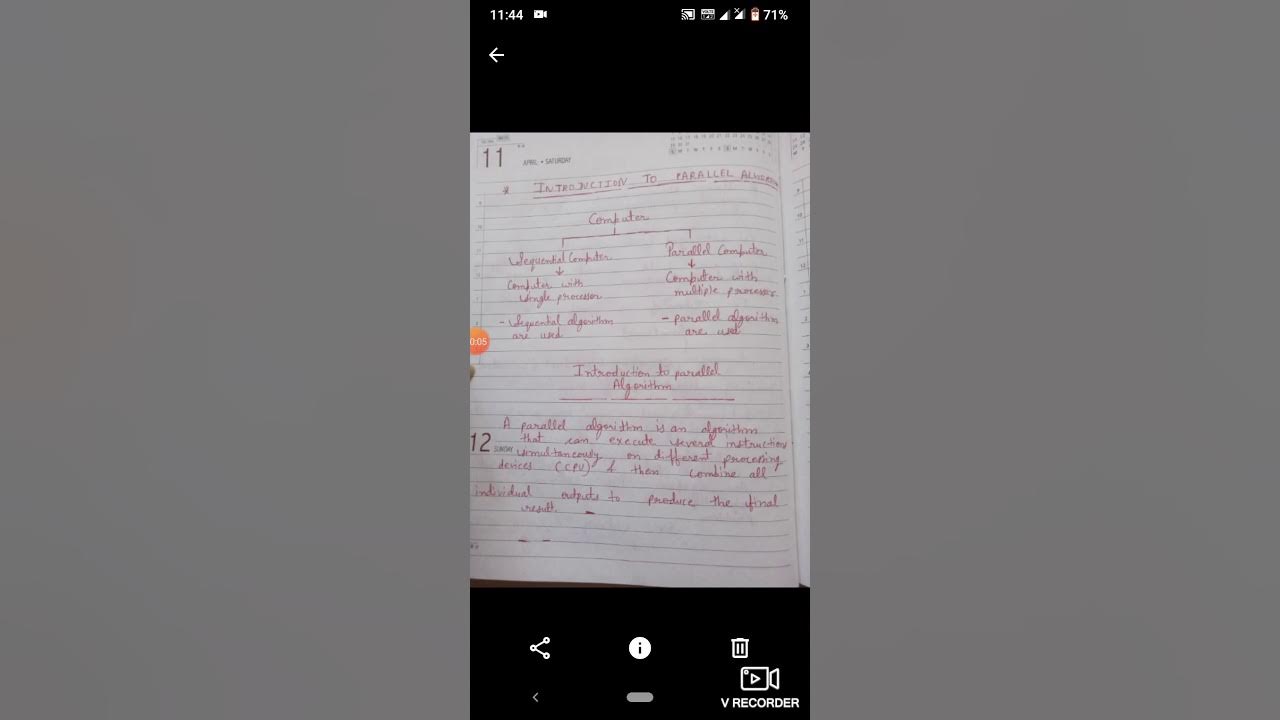 11:44 71%
11 APRIL • SATURDAY
* INTRODUCTION TO PARALLEL ALGORITHM
Computer
Sequential Computer Parallel Computer
Computer with Computer with
single processor multiple processor
- Sequential algorithm - parallel algorithm
are used are used
0:05
Introduction to parallel
Algorithm
A parallel algorithm is an algorithm
12 SUNDAY that can execute several instruction
simultaneously on different processing
devices (CPU) & then combine all
individual outputs to produce the final
result.
V RECORDER